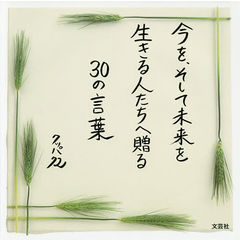 今を、そして未来を
生きる人たちへ贈る
30の言葉
文芸社